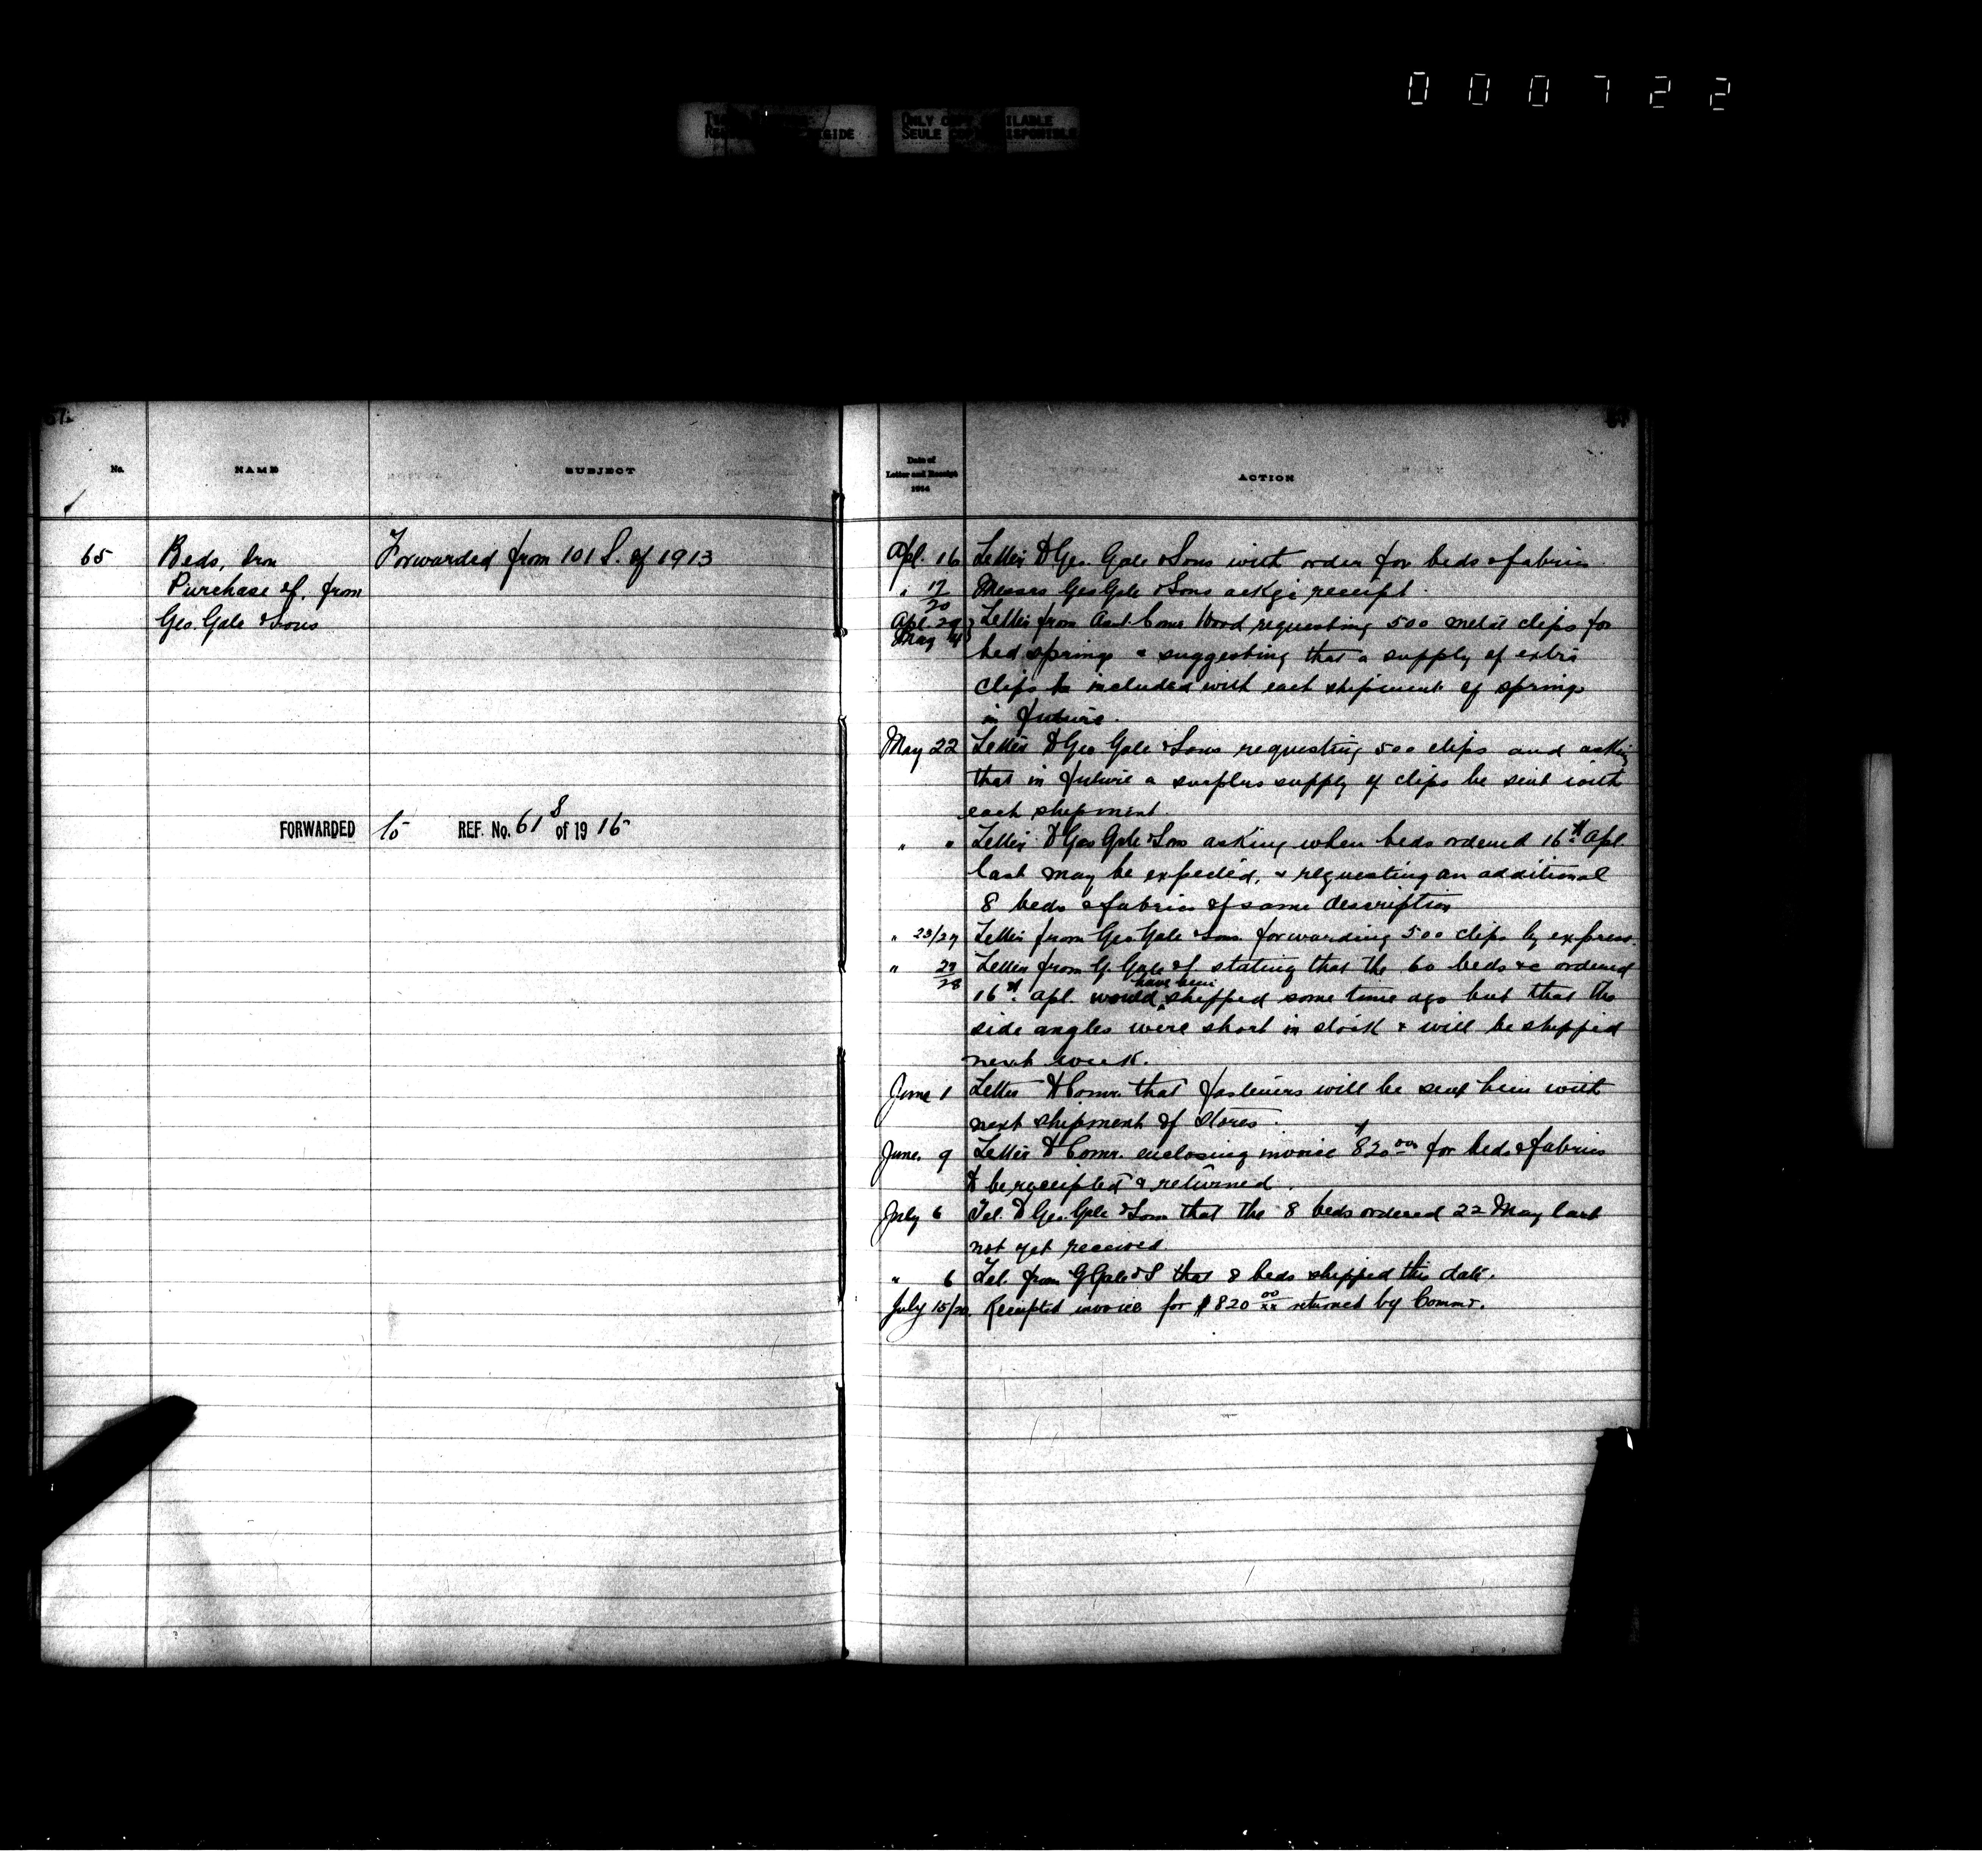 000722
ONLY COPY AVAILABLE
SEULE COPIE DISPONIBLE
No.
NAME
SUBJECT
65
Beds, Iron
Purchase of, from
Geo. Gale & Sons
Forwarded from 101 S. of 1913
FORWARDED to REF. No. 61 S of 19 15
Date of
Letter and Receipt
1914
ACTION
Apl. 16 Letter to Geo. Gale & Sons with order for beds & fabrics
" 17/20 Messrs Geo Gale & Sons ackge receipt.
Apl. 29 Letter from Asst. Comr. Wood requesting 500 metal clips for
May 4 bed springs & suggesting that a supply of extra
clips be included with each shipment of springs
in future.
May 22 Letter to Geo Gale & Sons requesting 500 clips and asking
that in future a surplus supply of clips be sent with
each shipment
" " Letter to Geo Gale & Sons asking when beds ordered 16th Apl.
last may be expected, & requesting an additional
8 beds & fabrics of same description
" 23/27 Letter from Geo. Gale & Sons forwarding 500 clips by express.
" 27/28 Letter from G. Gale & S. stating that the 60 beds &c ordered
16th Apl. would have been shipped some time ago but that the
side angles were short in stock & will be shipped
next week.
June 1 Letter to Comr. that fasteners will be sent him with
next shipment of stores.
June. 9 Letter to Comr. enclosing invoice $820.00 for beds & fabrics
to be receipted & returned.
July 6 Tel. to Geo. Gale & Sons that the 8 beds ordered 22 May last
not yet received.
" 6 Tel. from G Gale & S that 8 beds shipped this date.
July 15/20 Receipted invoice for $820 00/xx returned by Commr.